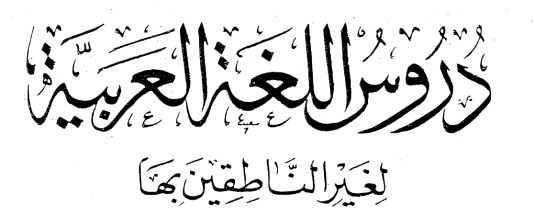 دُرُوسُ اللغَةِ العَرَبيَّةِ
لِغَيْرِ النَّاطِقِينَ بِهَا